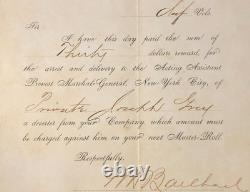 Vols.
Sir
I have this day paid the sum of
Thirty dollars reward, for
the arrest and delivery to the Acting Assistant
Provost Marshal-General, New York City, of
Private Joseph Guy
a deserter from your Company which amount must
be charged against him on your next Muster-Roll.
Respectfully,